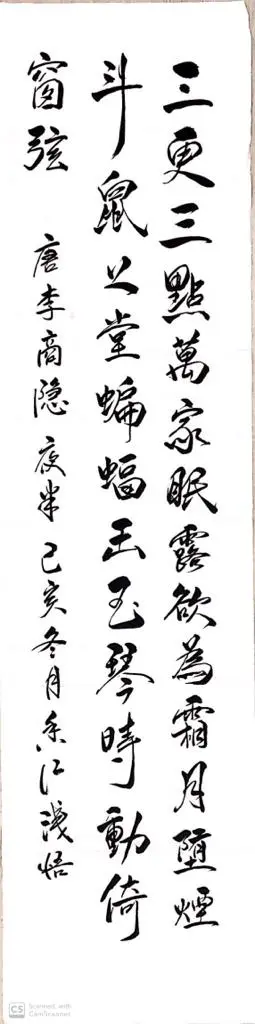 三更三點萬家眠露欲為霜月墮煙
斗鼠上堂蝙蝠出玉琴時動倚
窗弦
唐李商隐夜半己亥冬月香江淺悟
CS Scanned with
CamScanner